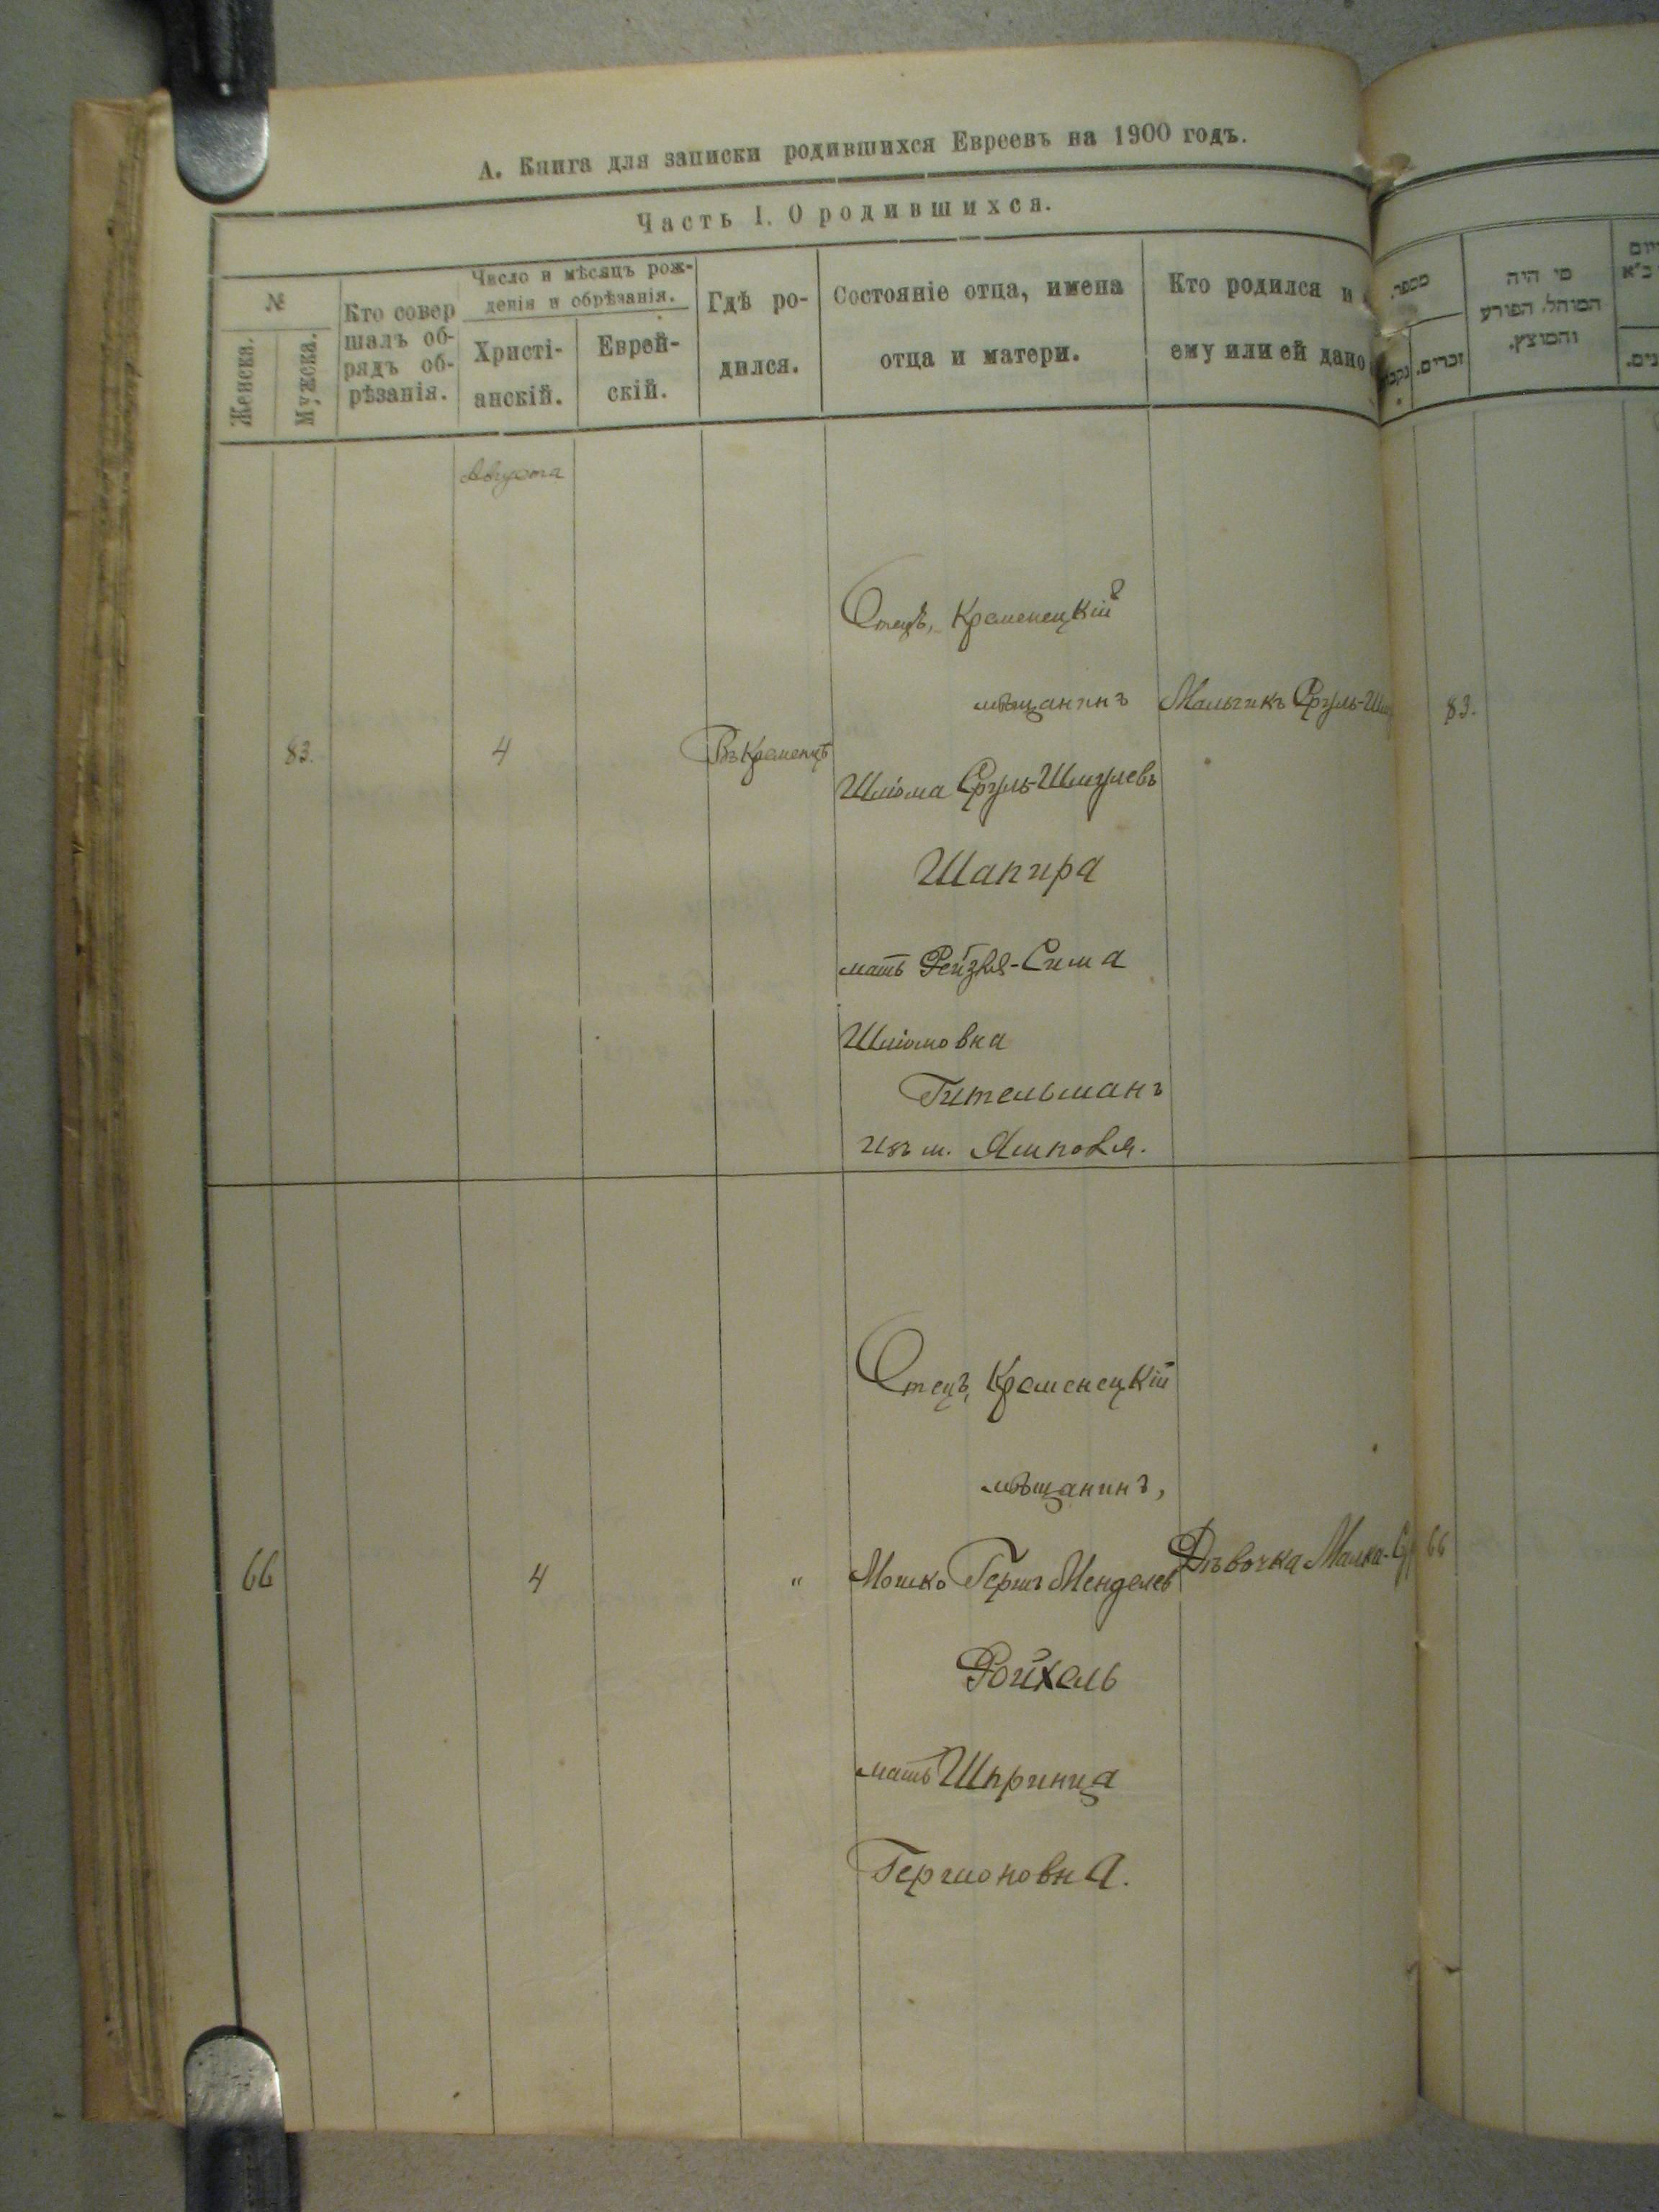 А. Книга для записки родившихся Евреевъ на 1900 годъ.
Часть I. О родившихся.
№
Женска.
Мужска.
Кто совер
шалъ об-
рядъ об-
рѣзанія.
Число и мѣсяцъ рож-
денія и обрѣзанія.
Христі-
анскій.
Еврей-
скій.
Гдѣ ро-
дился.
Состояніе отца, имена
отца и матери.
Кто родился и
ему или ей дано
מספר.
זכרים.
מי היה
המוהל, הפורע
והמוצץ.
Августа
83.
4
Въ Кременцѣ
Отецъ, Кременецкій
мѣщанинъ
Шліома Сруль-Шмулевъ
Шапира
мать Рейзля-Сима
Шліомовна
Гительманъ
изъ м. Ямполя.
Мальчикъ Сруль-
83.
66
4
"
Отецъ, Кременецкій
мѣщанинъ,
Мошко Гершъ Менделев
Ройхель
мать Шпринца
Гершоновна.
Дѣвочка Малка-
66